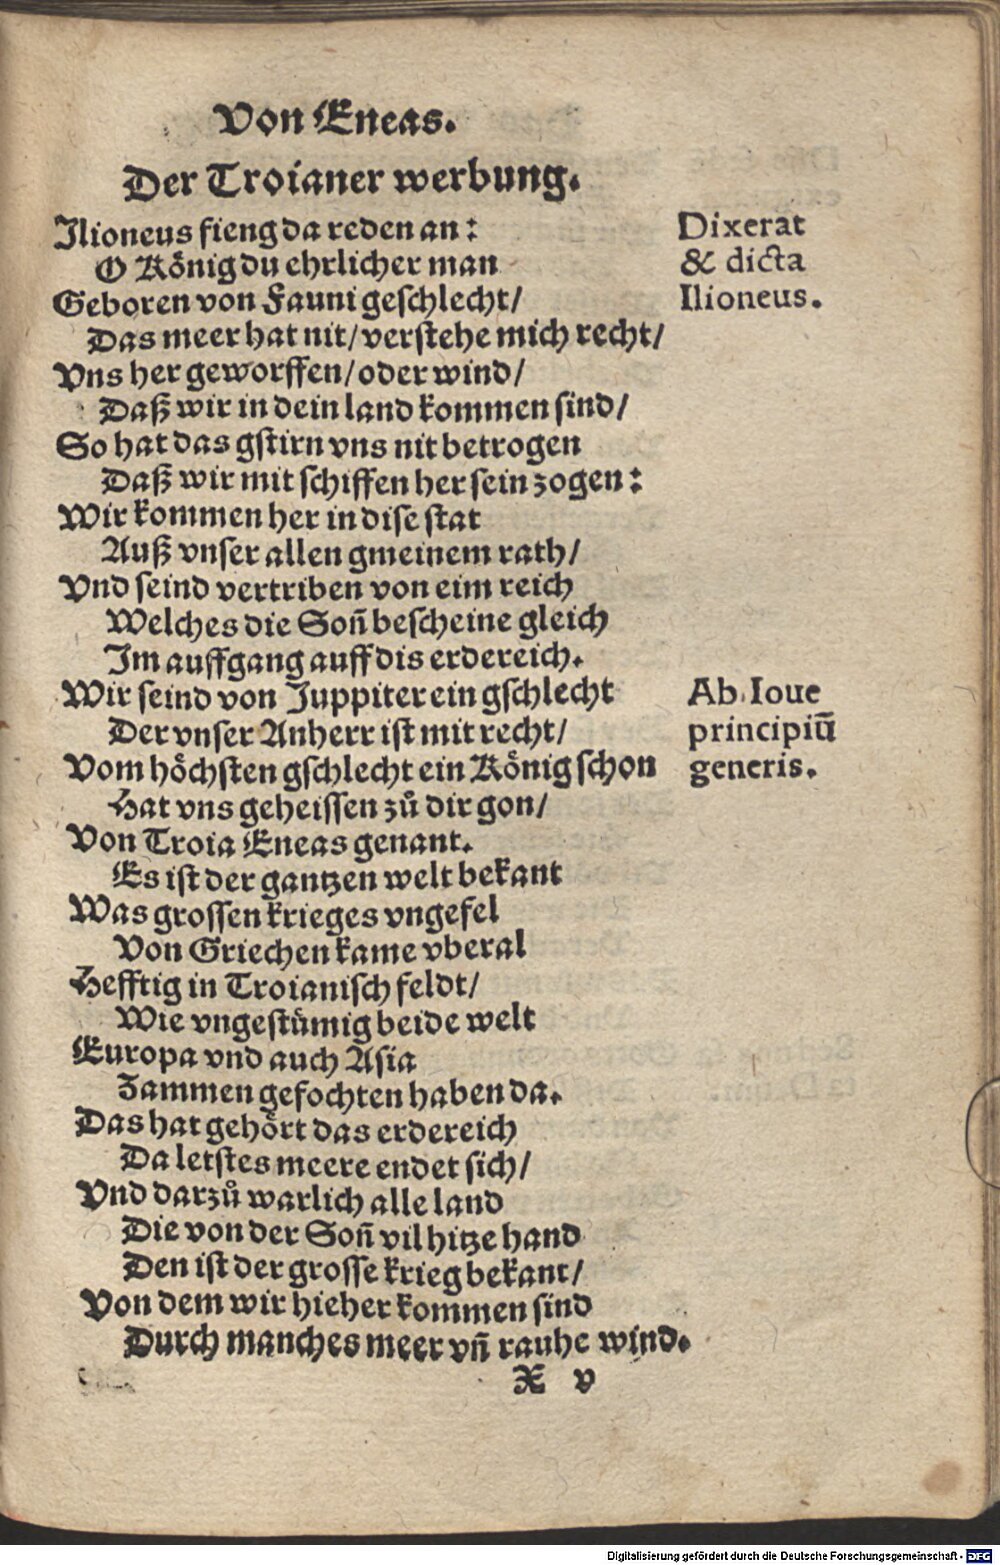 Von Eneas.
Der Troianer werbung.
Ilioneus fieng da reden an:
O König du ehrlicher man
Geboren von Fauni geschlecht/
Das meer hat nit/ verstehe mich recht/
Vns her geworffen/ oder wind/
Daß wir in dein land kommen sind/
So hat das gstirn vns nit betrogen
Daß wir mit schiffen her sein zogen:
Wir kommen her in dise stat
Auß vnser allen gmeinem rath/
Vnd seind vertriben von eim reich
Welches die Soñ bescheine gleich
Im auffgang auff dis erdereich.
Wir seind von Juppiter ein gschlecht
Der vnser Anherr ist mit recht/
Vom höchsten gschlecht ein König schon
Hat vns geheissen zů dir gon/
Von Troia Eneas genant.
Es ist der gantzen welt bekant
Was grossen krieges vngefel
Von Griechen kame vberal
Hefftig in Troianisch feldt/
Wie vngestümig beide welt
Europa vnd auch Asia
Zammen gefochten haben da.
Das hat gehört das erdereich
Da letstes meere endet sich/
Vnd darzů warlich alle land
Die von der Soñ vil hitze hand
Den ist der grosse krieg bekant/
Von dem wir hieher kommen sind
Durch manches meer vñ rauhe wind.
X v
Dixerat
& dicta
Ilioneus.
Ab Ioue
principiũ
generis.
Digitalisierung gefördert durch die Deutsche Forschungsgemeinschaft - DFG